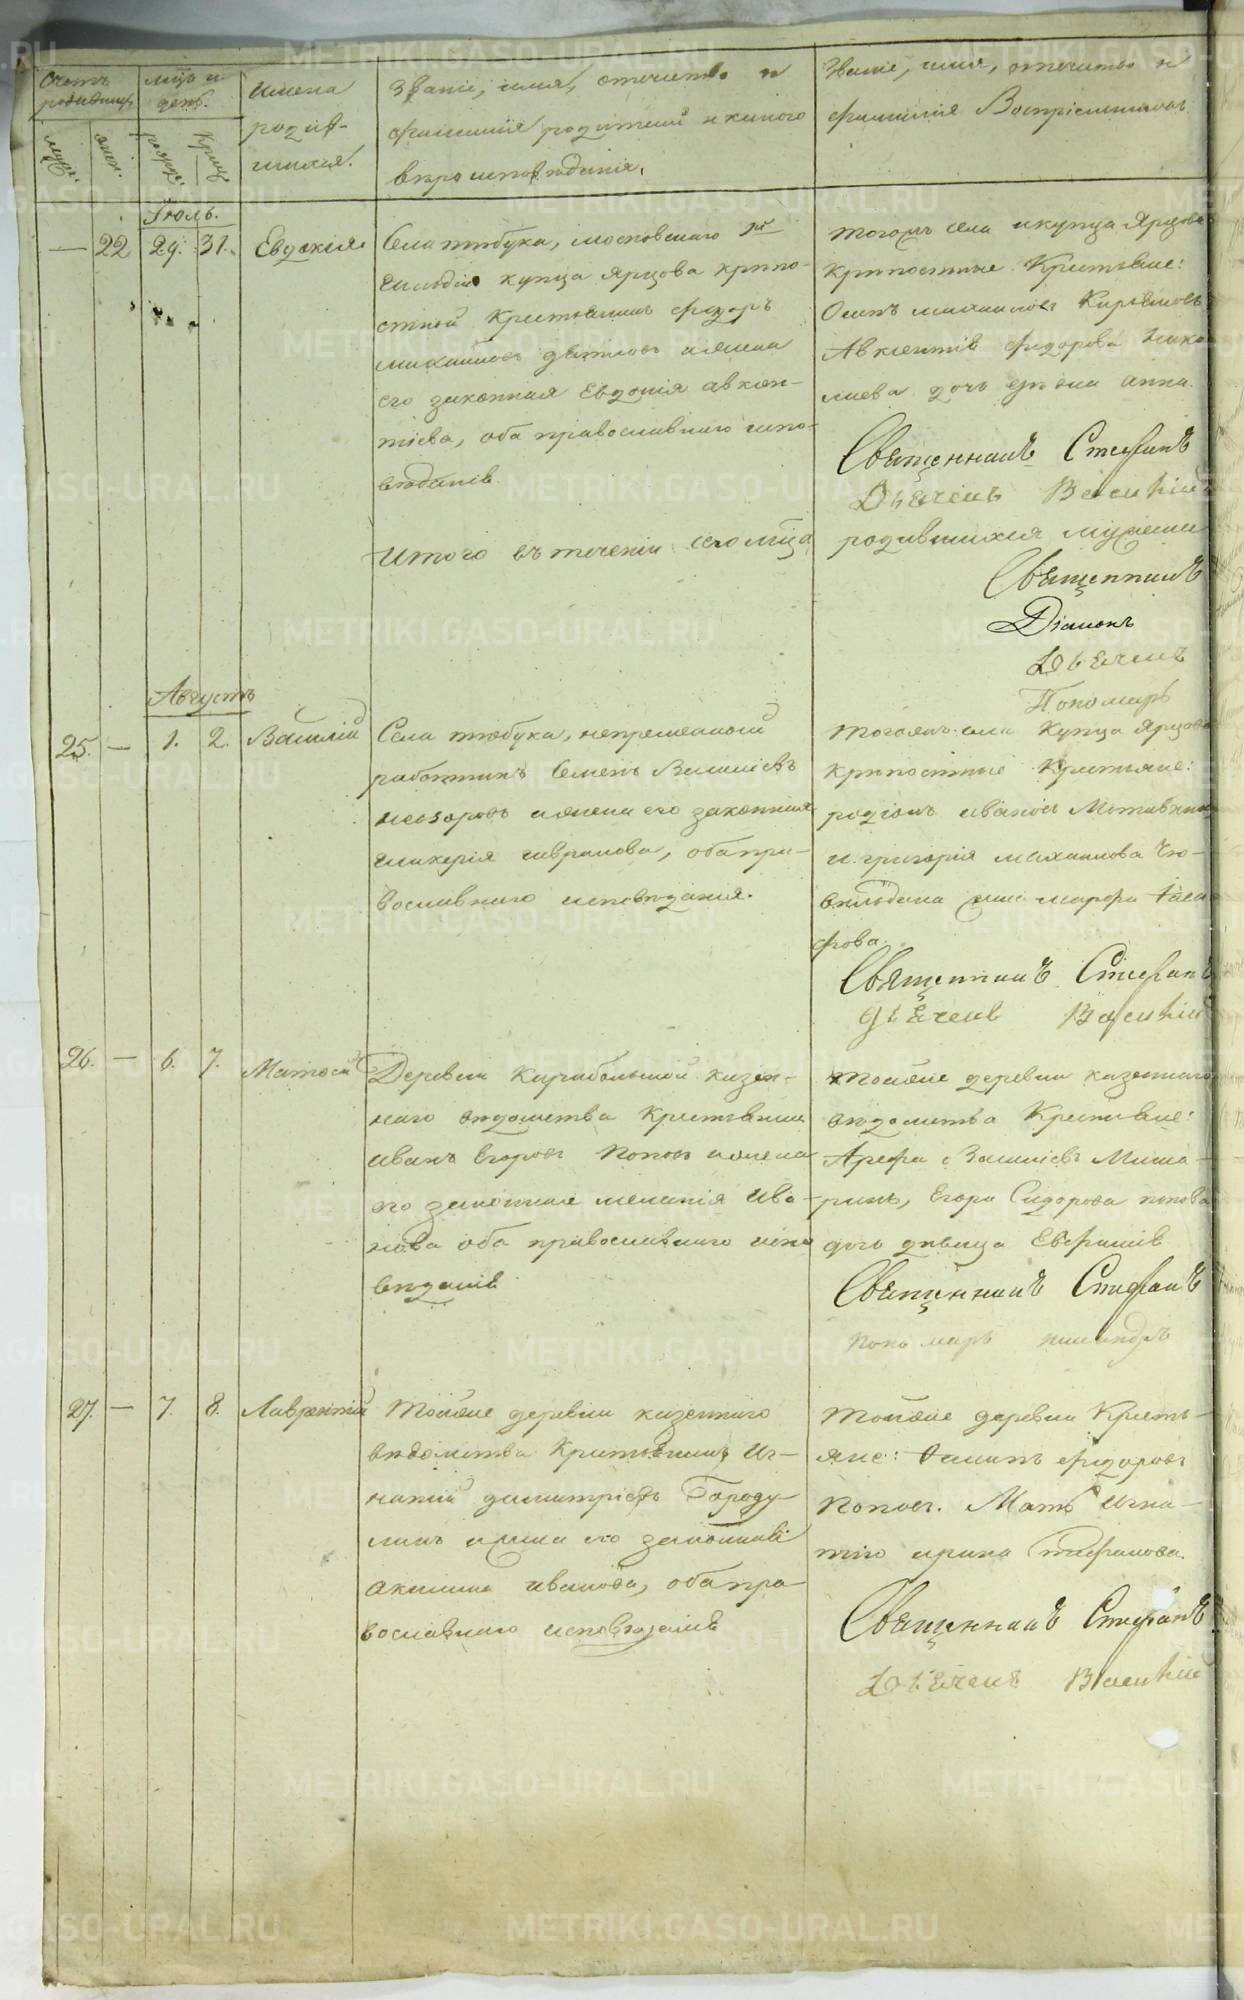 Счетъ родившихся
мѣсяцъ и день.
Имена родив-
шихся.
Званіе, имя, отчество и
фамилія родителей и какого
вѣроисповѣданія.
Званіе, имя, отчество и
фамилія Воспріемниковъ
муж.
жен.
рожд.
крещ.
Іюль.
— 22 29. 31. Евдокія
Села тюбука, московскаго 1й
гильдіи купца Ярцова крѣпо-
стной Крестьянинъ федоръ
михаиловъ и жена
его законная Евдокія авксен-
тіева, оба православнаго испо-
вѣданія
тогожъ села и купца Ярцова
крѣпостные Крестьяне:
Осипъ михаиловъ
Авксентія федорова
дочь дѣвица анна.
Священникъ Стефанъ
Дьячекъ Василій
Итого въ теченіи сего мѣсяца родившихся мужеска
Священникъ
Діаконъ
Дьячекъ
Пономарь
Августъ
25. — 1. 2. Василій
Села тюбука, непремѣнной
работникъ Семенъ Василіевъ
и жена его законная
гликерія гаврилова, оба пра-
вославнаго исповѣданія.
тогожъ села Купца Ярцова
крѣпостные Крестьяне:
родіонъ ивановъ
и григорія михаилова
жена марфа
фова.
Священникъ Стефанъ
дьячекъ Василій
26. — 6. 7. Матвей
Деревни казен-
наго вѣдомства Крестьянинъ
иванъ Егоровъ Поповъ и жена
его законная меланія ива-
нова оба православнаго испо
вѣданія
тойже деревни казеннаго
вѣдомства Крестьяне:
Арефа Василіевъ Миша-
ринъ, Егора Сидорова попова
дочь дѣвица Евфимія
Священникъ Стефанъ
пономарь
27. — 7. 8. Лаврентій
Тойже деревни казеннаго
вѣдомства Крестьянинъ Иг-
натій димитріевъ Городу-
линъ и жена его законная
акилина иванова, оба пра-
вославнаго исповѣданія
тойже деревни Кресть-
яне: федоровъ
поповъ. Мать игна-
тія ирина
Священникъ Стефанъ
Дьячекъ Василій
METRIKI.GASO-URAL.RU